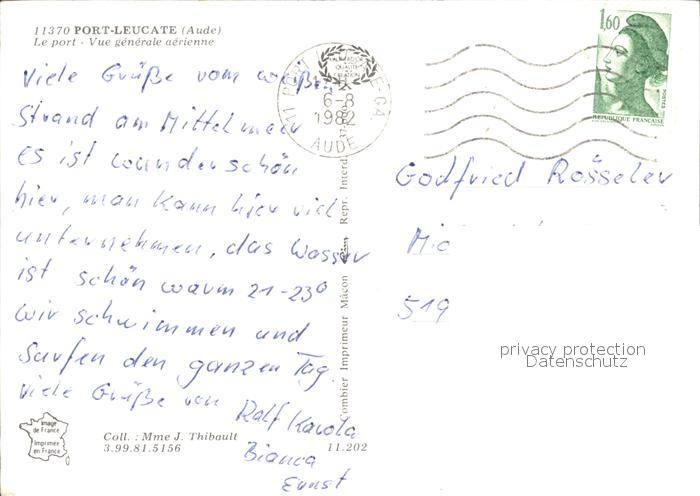 11370 PORT-LEUCATE (Aude)
Le port - Vue générale aérienne
Viele Grüße vom weißen
Strand am Mittelmeer
es ist wunderschön
hier, man kann hier viel
unternehmen, das Wasser
ist schön warm 21-23°
wir schwimmen und
Surfen den ganzen Tag.
Viele Grüße von
Ralf Karola
Bianca
Ernst
Image
de France
Imprimée
en France
Coll. : Mme J. Thibault
3.99.81.5156
11.202
Combier Imprimeur Mâcon
Repr. Interd.
6-8
1982
AUDE
1,60
POSTES
REPUBLIQUE FRANÇAISE
Godfried Rösseler
Mic
519
privacy protection
Datenschutz